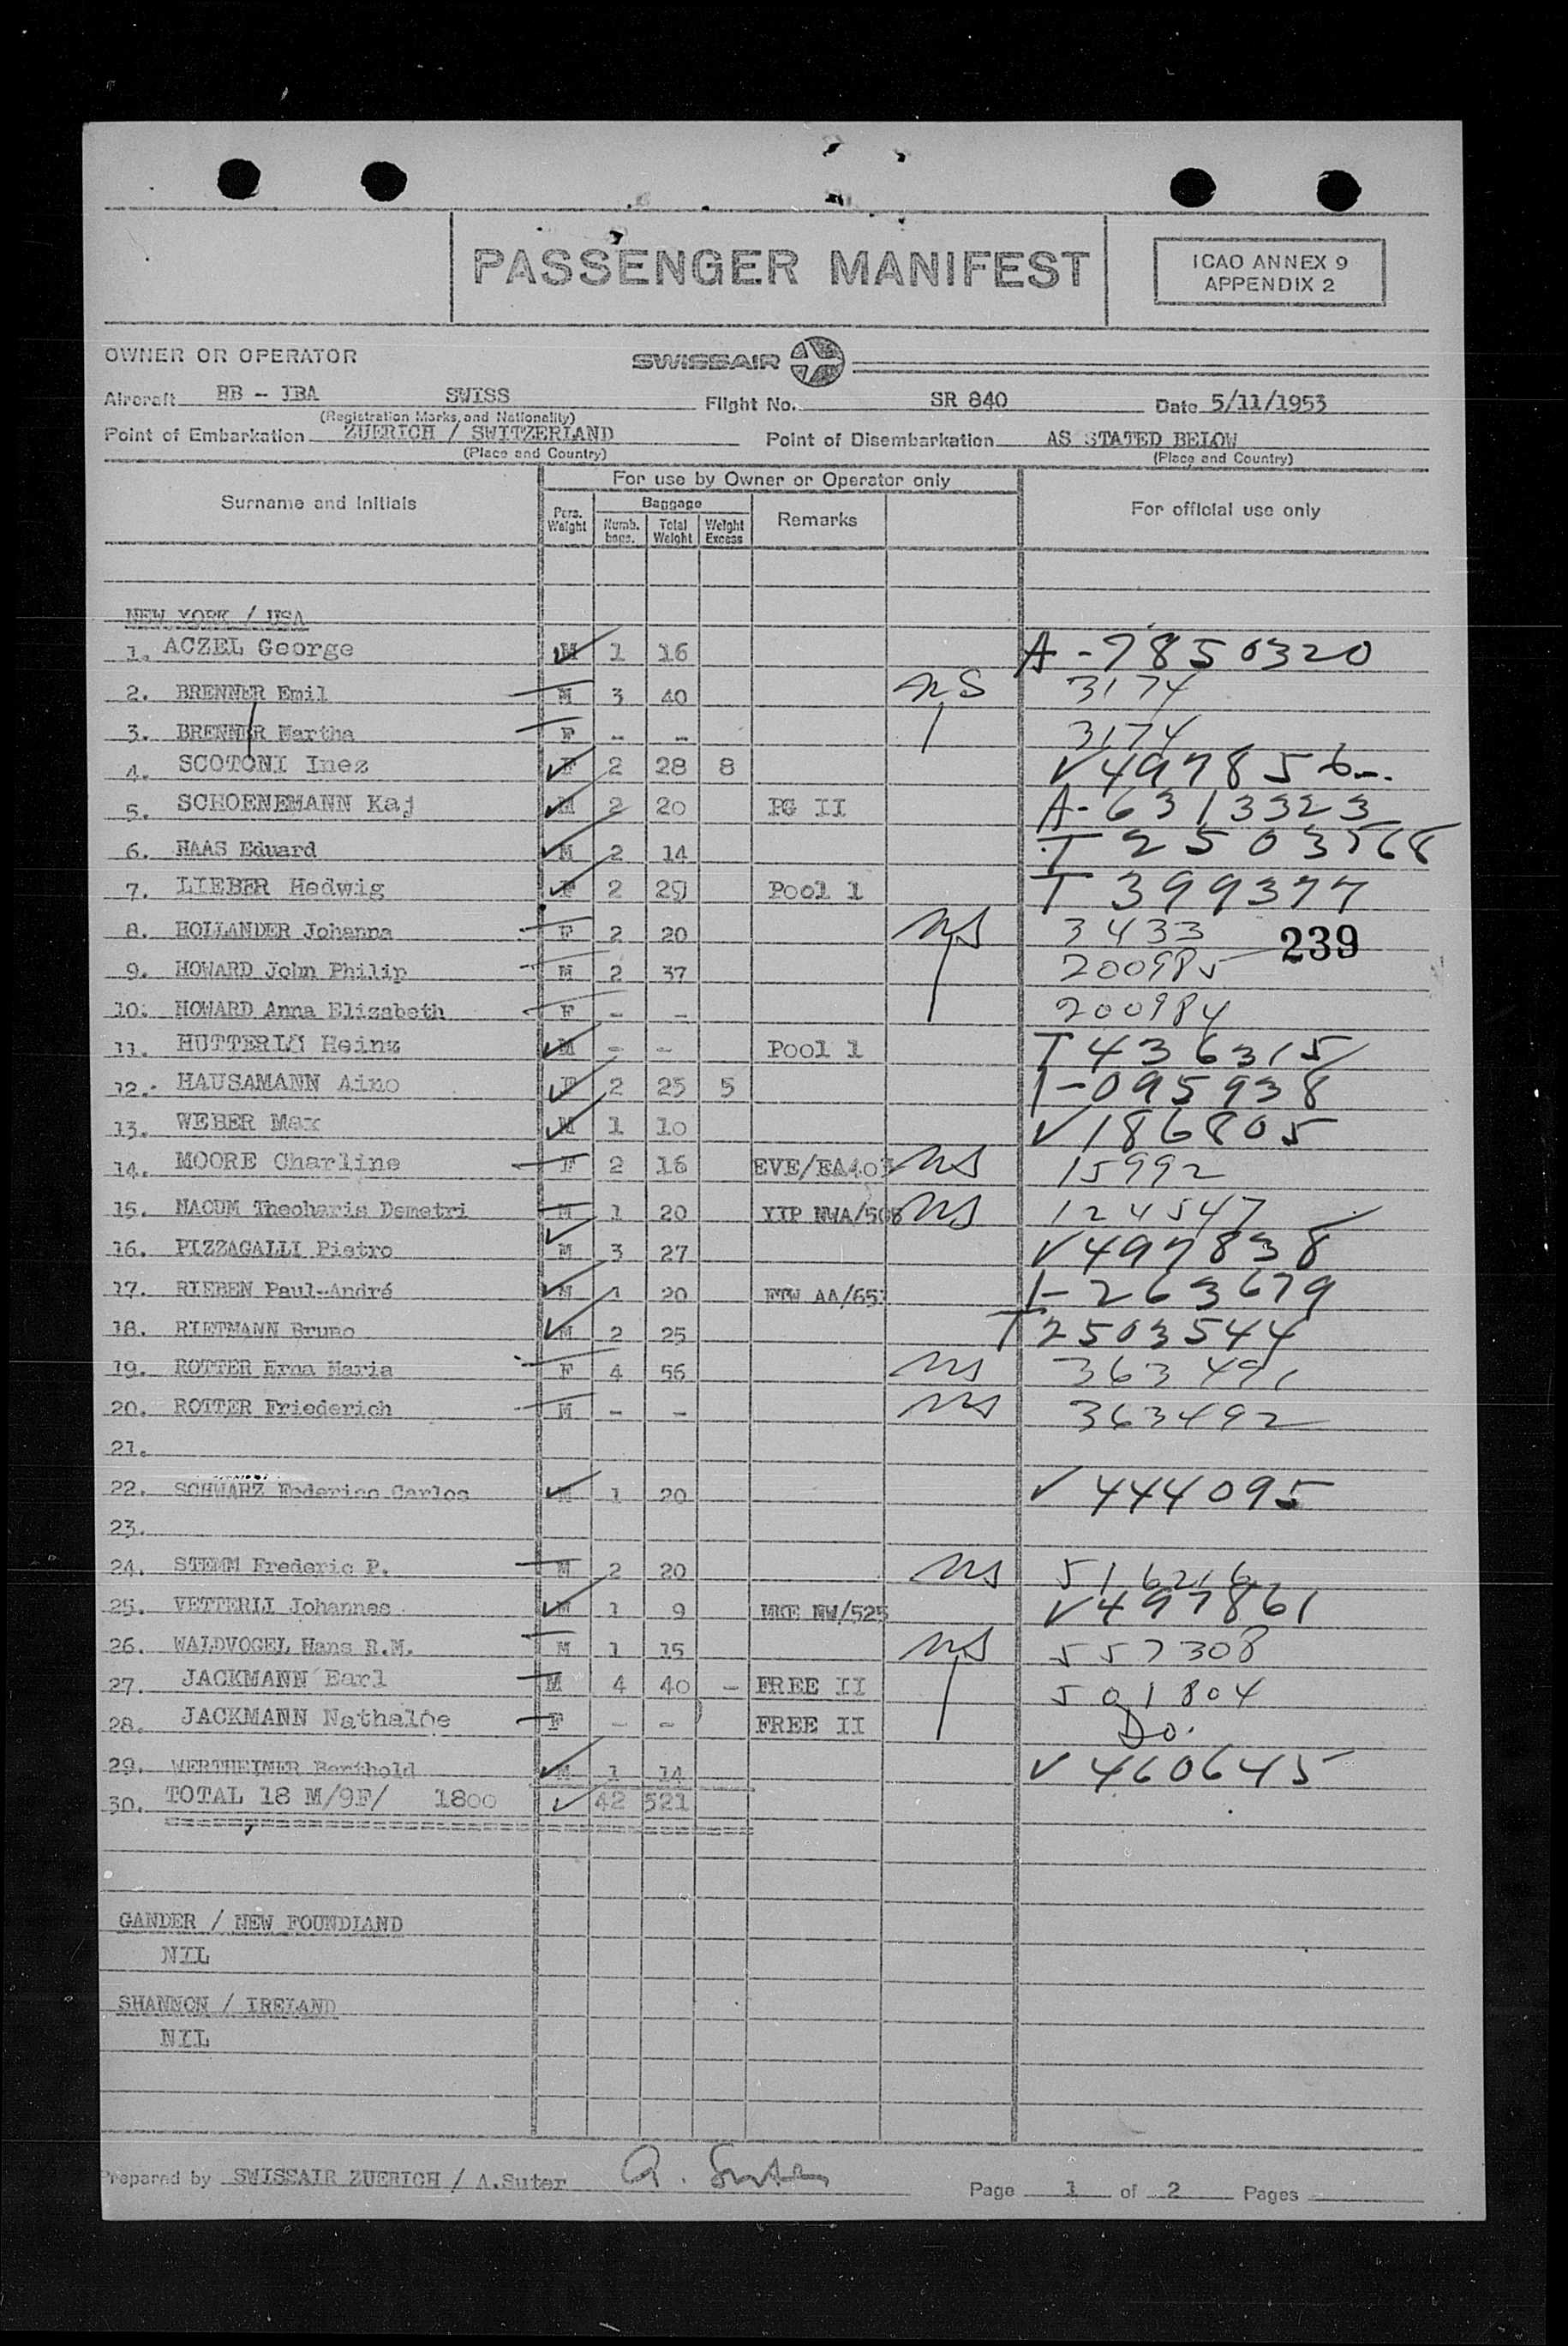 PASSENGER MANIFEST
ICAO ANNEX 9
APPENDIX 2
OWNER OR OPERATOR
SWISSAIR
Aircraft HB - IBA SWISS Flight No. SR 840 Date 5/11/1953
(Registration Marks and Nationality)
Point of Embarkation ZUERICH / SWITZERLAND Point of Disembarkation AS STATED BELOW
(Place and Country) (Place and Country)
For use by Owner or Operator only
Surname and Initials Pers. Weight Baggage Numb. bags. Total Weight Weight Excess Remarks For official use only
NEW YORK / USA
1. ACZEL George M 1 16 A-7850320
2. BRENNER Emil M 3 40 NS 3174
3. BRENNER Martha F - - 3174
4. SCOTONI Inez F 2 28 8 V497856
5. SCHOENEMANN Kaj M 2 20 PG II A-6313323
6. HAAS Eduard M 2 14 T 2503568
7. LIEBER Hedwig F 2 29 Pool 1 T 399377
8. HOLLANDER Johanna F 2 20 NS 3433
239
9. HOWARD John Philip M 2 37 200985
10. HOWARD Anna Elizabeth F - - 200984
11. HUTTERLI Heinz M - - Pool 1 T 436315
12. HAUSAMANN Aino F 2 25 5 I-095938
13. WEBER Max M 1 10 V186805
14. MOORE Charline F 2 16 EVE/EA403 NS 15992
15. NAOUM Theocharis Demetri M 1 20 YIP NWA/508 NS 124547
16. PIZZAGALLI Pietro M 3 27 V497838
17. RIEBEN Paul-André M 1 20 FTW AA/657 I-263679
18. RIETMANN Bruno M 2 25 T2503544
19. ROTTER Erna Maria F 4 56 NS 363491
20. ROTTER Friederich M - - NS 363492
21.
22. SCHWARZ Federico Carlos M 1 20 V 444095
23.
24. STEMM Frederic P. M 2 20 NS 516216
25. VETTERLI Johannes M 1 9 MKE NW/525 V497861
26. WALDVOGEL Hans R.M. M 1 15 NS 557308
27. JACKMANN Earl M 4 40 - FREE II 501804
28. JACKMANN Nathalöe F - - FREE II Do.
29. WERTHEIMER Berthold M 1 14 V 460645
30. TOTAL 18 M/9F/ 1800 42 521
GANDER / NEW FOUNDLAND
NIL
SHANNON / IRELAND
NIL
Prepared by SWISSAIR ZUERICH / A.Suter A. Suter
Page 1 of 2 Pages